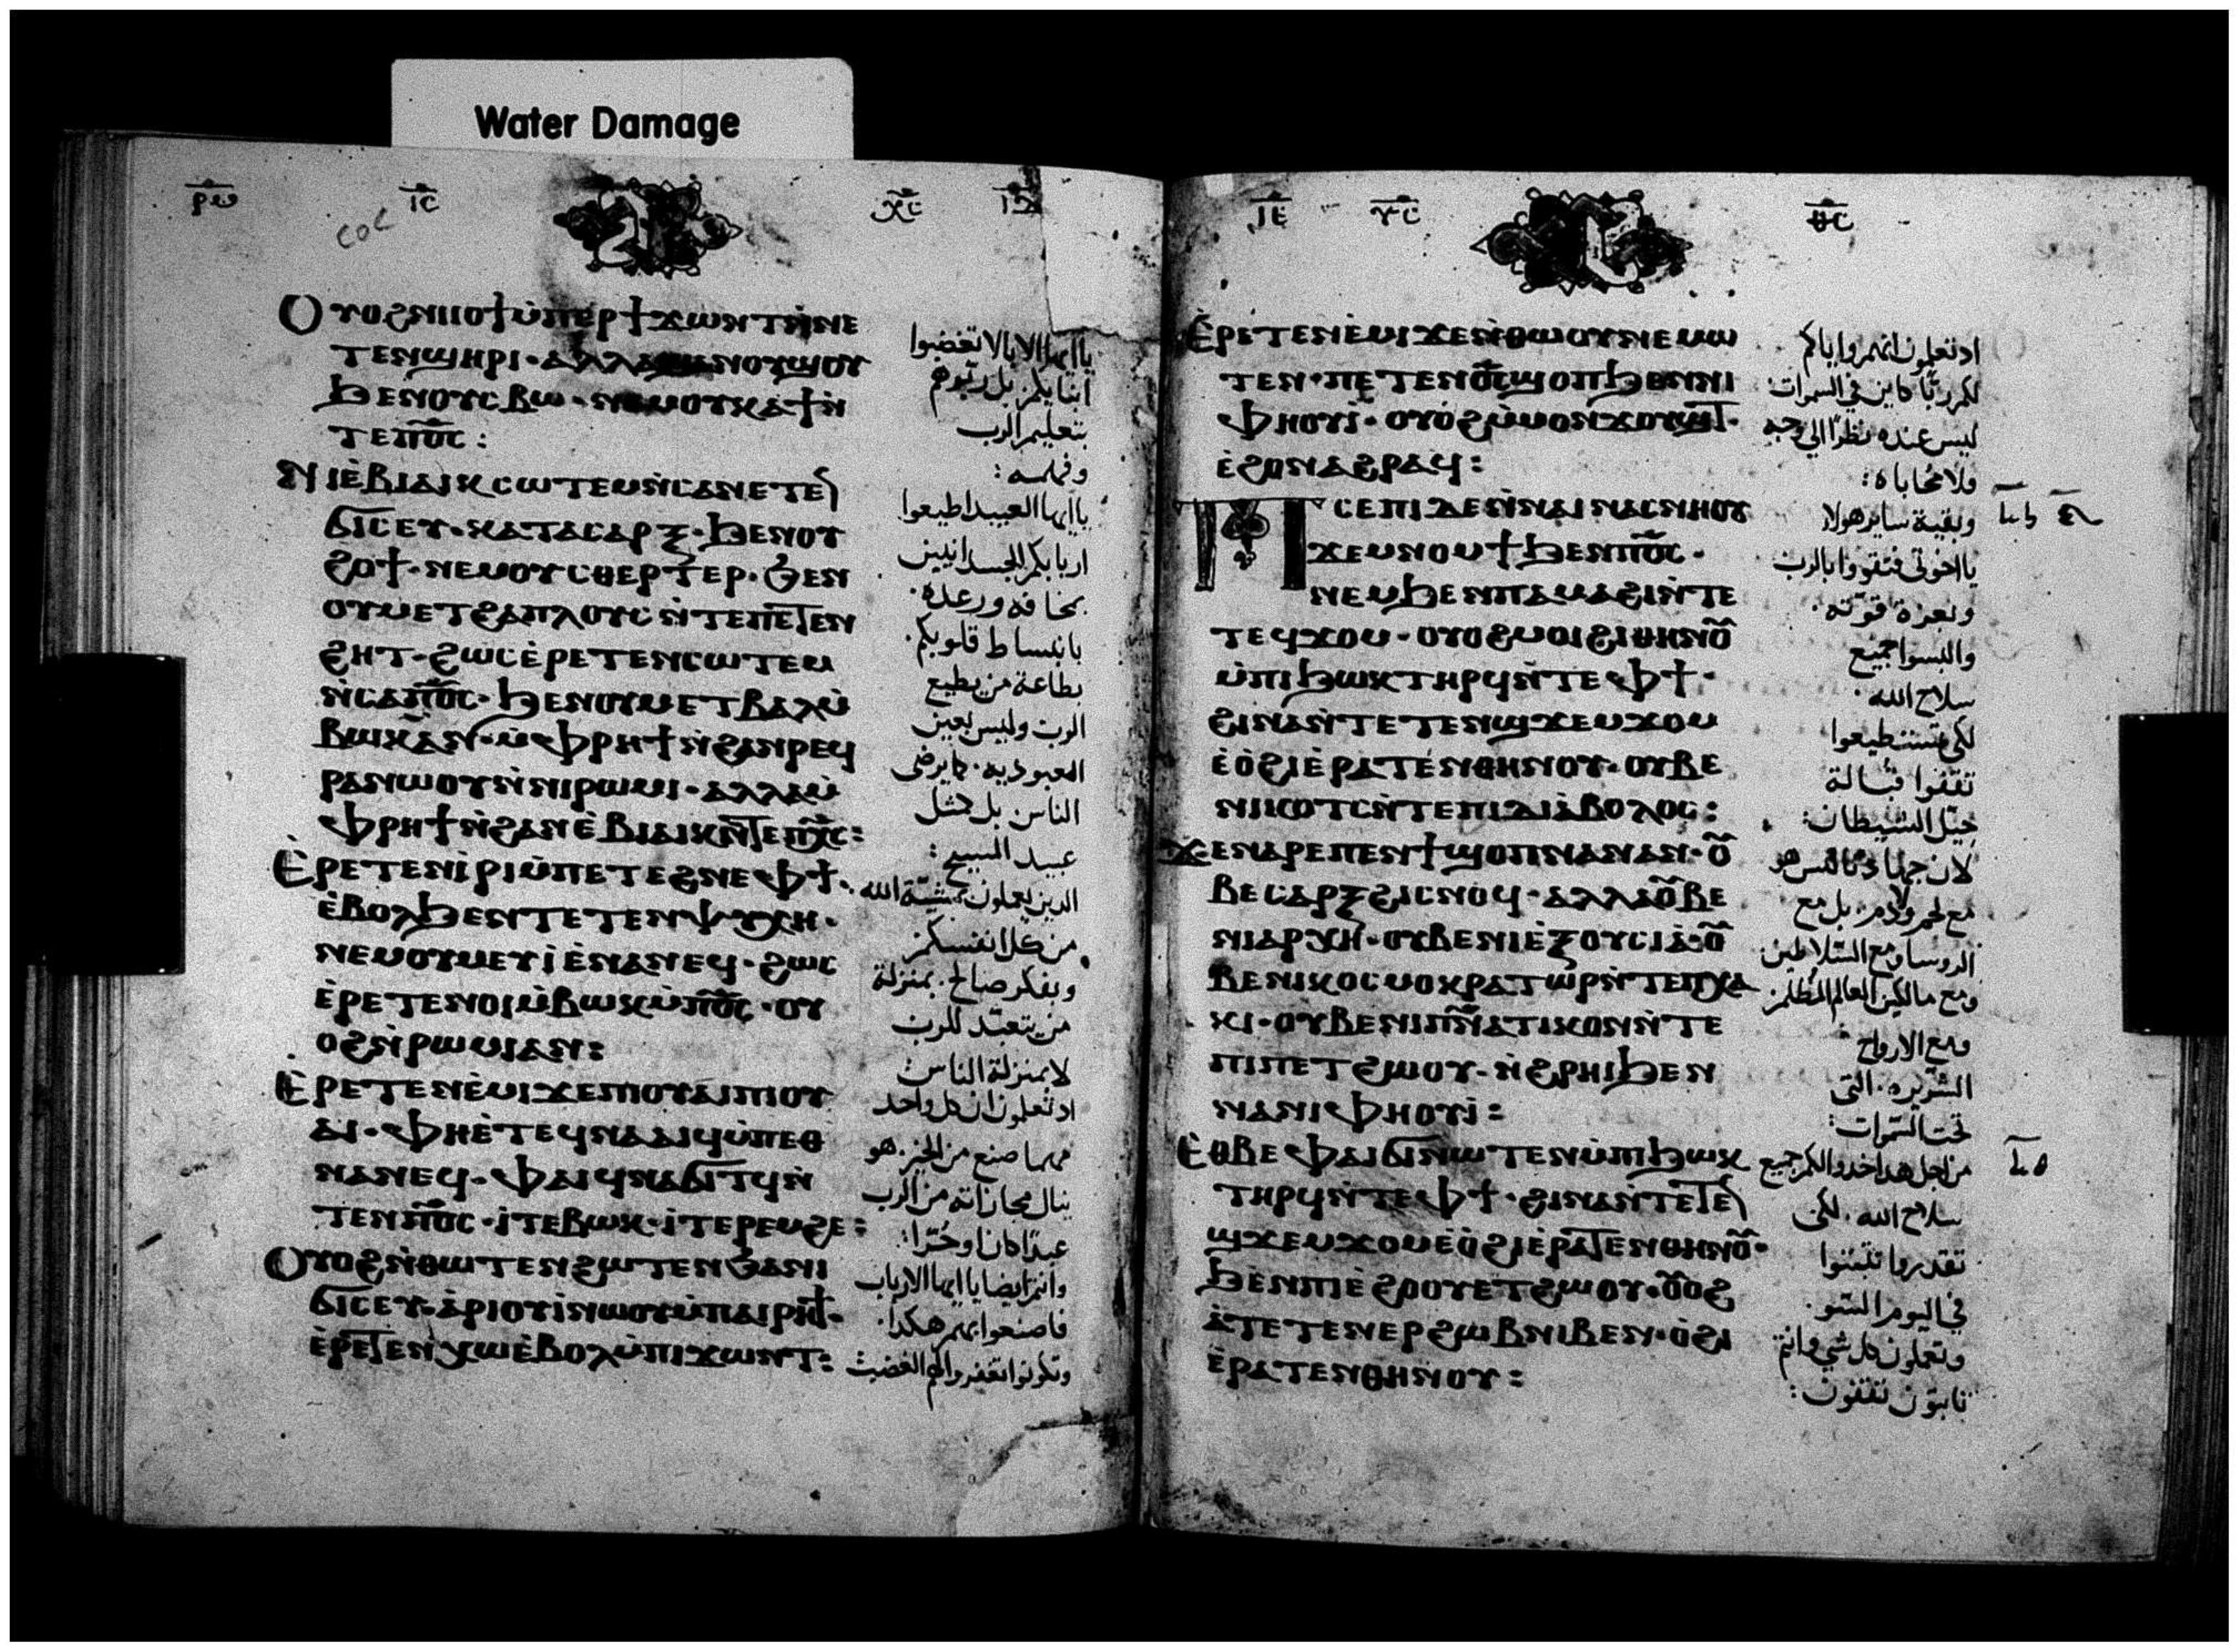 Water Damage
ⲓ̅ⲥ̅
ⲭ̅ⲥ̅
Ⲟⲩⲟϩ ⲛⲓⲓⲟϯ ⲙ̀ⲡⲉⲣϯϫⲱⲛⲧ ⲛ̀ⲛⲉ
ⲧⲉⲛϣⲏⲣⲓ · ⲁⲗⲗⲁ ϣⲁⲛⲟⲩϣⲟⲩ
ϧⲉⲛⲟⲩⲥⲃⲱ · ⲛⲉⲙⲟⲩⲕⲁϯ ⲛ̀
ⲧⲉⲡ̅ⲟ̅ⲥ̅ :
Ⲛⲓⲉ̀ⲃⲓⲁⲓⲕ ⲥⲱⲧⲉⲙ ⲛ̀ⲥⲁⲛⲉⲧⲉⲛ
ϭⲓⲥⲉⲩ · ⲕⲁⲧⲁⲥⲁⲣⲝ · ϧⲉⲛⲟⲩ
ϩⲟϯ · ⲛⲉⲙⲟⲩⲥⲑⲉⲣⲧⲉⲣ · ϧⲉⲛ
ⲟⲩⲙⲉⲧϩⲁⲡⲗⲟⲩⲥ ⲛ̀ⲧⲉⲡⲉⲧⲉⲛ
ϩⲏⲧ · ϩⲱⲥ ⲉ̀ⲣⲉⲧⲉⲛⲥⲱⲧⲉⲙ
ⲛ̀ⲥⲁⲡ̅ⲟ̅ⲥ̅ · ϧⲉⲛⲟⲩⲙⲉⲧⲃⲁⲗⲙ̀
ⲃⲱⲕ ⲁⲛ · ⲙ̀ⲫⲣⲏϯ ⲛ̀ϩⲁⲛⲣⲉϥ
ⲣⲁⲛⲱⲟⲩ ⲛ̀ⲛⲓⲣⲱⲙⲓ · ⲁⲗⲗⲁ ⲙ̀
ⲫⲣⲏϯ ⲛ̀ϩⲁⲛⲉ̀ⲃⲓⲁⲓⲕ ⲛ̀ⲧⲉⲡ̅ⲭ̅ⲥ̅ :
Ⲉ̀ⲣⲉⲧⲉⲛⲓ̀ⲣⲓ ⲙ̀ⲡⲉⲧⲉϩⲛⲉ ⲫϯ ·
ⲉ̀ⲃⲟⲗϧⲉⲛⲧⲉⲧⲉⲛⲯⲩⲭⲏ ·
ⲛⲉⲙⲟⲩⲙⲉⲩⲓ̀ ⲉ̀ⲛⲁⲛⲉϥ · ϩⲱⲥ
ⲉ̀ⲣⲉⲧⲉⲛⲟⲓ ⲙ̀ⲃⲱⲕ ⲙ̀ⲡ̅ⲟ̅ⲥ̅ · ⲟⲩ
ⲟϩ ⲛ̀ⲣⲱⲙⲓ ⲁⲛ :
Ⲉ̀ⲣⲉⲧⲉⲛⲉ̀ⲙⲓ ϫⲉⲡⲓⲟⲩⲁⲓ ⲡⲓⲟⲩ
ⲁⲓ · ⲫⲏⲉ̀ⲧⲉϥⲛⲁⲁⲓϥ ⲙ̀ⲡⲉⲑ
ⲛⲁⲛⲉϥ · ⲫⲁⲓ ϥⲛⲁϭⲓⲧϥ ⲛ̀
ⲧⲉⲛⲡ̅ⲟ̅ⲥ̅ · ⲓ̀ⲧⲉ ⲃⲱⲕ · ⲓ̀ⲧⲉ ⲣⲉⲙϩⲉ :
Ⲟⲩⲟϩ ⲛ̀ⲑⲱⲧⲉⲛϩⲱⲧⲉⲛ ϧⲁ ⲛⲓ
ϭⲓⲥⲉⲩ · ⲁ̀ⲣⲓⲟⲩⲓ̀ ⲛⲱⲟⲩ ⲙ̀ⲡⲁⲓⲣⲏϯ ·
ⲉ̀ⲣⲉⲧⲉⲛⲭⲱ ⲉ̀ⲃⲟⲗ ⲙ̀ⲡⲓϫⲱⲛⲧ :
يا ايها الابا لا تغضبوا
ابنايكم بل ربّوهم
بتعليم الرب
وفهمه :
يا ايها العبيد اطيعوا
اربابكم الجسدانيين
بمخافه ورعده ·
بانبساط قلوبكم ·
بطاعة من يطيع
الرب وليس بعين
العبوديه · كما يرضى
الناس بل كمثل
عبيد المسيح :
الذين يعملون بمشيّة الله
من كل انفسكم
وبفكر صالح · بمنزلة
من يتعبّد للرب
لا بمنزلة الناس
اذ تعلمون ان كل واحد
مهما صنع من الخير · هو
ينال مجازاته من الرب
عبدًا كان او حُرًّا :
وانتم ايضا يا ايها الارباب
فاصنعوا بهم هكذا ·
وتكونوا تغفروا لهم الغضب
Ⲉ̀ⲣⲉⲧⲉⲛⲉ̀ⲙⲓ ϫⲉⲛ̀ⲑⲱⲟⲩ ⲛⲉⲙⲱ
ⲧⲉⲛ · ⲡⲉⲧⲉⲛⲟ̅ⲥ̅ ϣⲟⲡ ϧⲉⲛⲛⲓ
ⲫⲏⲟⲩⲓ̀ · ⲟⲩⲟϩ ⲙ̀ⲙⲟⲛ ϫⲟⲩϣⲧ ·
ⲉ̀ϩⲟ ⲛⲁϩⲣⲁϥ :
Ⲡⲥⲉⲡⲓ ⲇⲉ ⲛ̀ⲛⲁⲓ ⲛⲁⲥⲛⲏⲟⲩ
ϫⲉⲙⲛⲟⲙϯ ϧⲉⲛⲡ̅ⲟ̅ⲥ̅ ·
ⲛⲉⲙϧⲉⲛⲡⲁⲙⲁϩⲓ ⲛ̀ⲧⲉ
ⲧⲉϥϫⲟⲙ · ⲟⲩⲟϩ ⲙⲟⲓ ϩⲓⲑⲏⲛⲟⲩ
ⲙ̀ⲡⲓϧⲱⲕ ⲧⲏⲣϥ ⲛ̀ⲧⲉ ⲫϯ ·
ϩⲓⲛⲁ ⲛ̀ⲧⲉⲧⲉⲛϣϫⲉⲙϫⲟⲙ
ⲉ̀ⲟ̀ϩⲓ ⲉ̀ⲣⲁⲧⲉⲛⲑⲏⲛⲟⲩ · ⲟⲩⲃⲉ
ⲛⲓⲕⲟⲧⲥ ⲛ̀ⲧⲉⲡⲓⲇⲓⲁ̀ⲃⲟⲗⲟⲥ :
ϫⲉⲛⲁⲣⲉⲡⲉⲛϯ ϣⲟⲡ ⲛⲁⲛ ⲁⲛ · ⲟⲩ
ⲃⲉ ⲥⲁⲣⲝ ϩⲓ ⲥⲛⲟϥ · ⲁⲗⲗⲁ ⲟⲩⲃⲉ
ⲛⲓⲁⲣⲭⲏ · ⲟⲩⲃⲉ ⲛⲓⲉ̀ⲝⲟⲩⲥⲓⲁ̀ · ⲟⲩ
ⲃⲉ ⲛⲓⲕⲟⲥⲙⲟⲕⲣⲁⲧⲱⲣ ⲛ̀ⲧⲉⲡⲭⲁ
ⲕⲓ · ⲟⲩⲃⲉ ⲛⲓⲡ̅ⲛ̅ⲁⲧⲓⲕⲟⲛ ⲛ̀ⲧⲉ
ϯⲡⲉⲧϩⲱⲟⲩ · ⲛ̀ϩⲣⲏⲓ ϧⲉⲛ
ⲛⲁⲛⲓⲫⲏⲟⲩⲓ̀ :
Ⲉⲑⲃⲉ ⲫⲁⲓ ϭⲓ ⲛⲱⲧⲉⲛ ⲙ̀ⲡⲓϧⲱⲕ
ⲧⲏⲣϥ ⲛ̀ⲧⲉ ⲫϯ · ϩⲓⲛⲁ ⲛ̀ⲧⲉⲧⲉⲛ
ϣϫⲉⲙϫⲟⲙ ⲉ̀ⲟ̀ϩⲓ ⲉ̀ⲣⲁⲧⲉⲛⲑⲏⲛⲟⲩ ·
ϧⲉⲛⲡⲓⲉ̀ϩⲟⲟⲩ ⲉⲧϩⲱⲟⲩ · ⲟⲩⲟϩ
ⲁ̀ⲧⲉⲧⲉⲛⲉⲣϩⲱⲃ ⲛⲓⲃⲉⲛ · ⲟ̀ϩⲓ
ⲉ̀ⲣⲁⲧⲉⲛⲑⲏⲛⲟⲩ :
اذ تعلمون انهم واياكم
لكم ربًّا كاين في السموات
ليس عنده نظرًا الى وجه
ولا محاباة :
وبقية ساير هولا
يا اخوتى فتقووا بالرب
وبعزة قوّته ·
والبسوا جميع
سلاح الله ·
لكى تستطيعوا
تقفوا قبالة
حيل الشيطان :
لان جهادنا ليس هو
مع لحم ودم · بل مع
الروسا ومع السّلاطين
ومع مالكين العالم المظلمز
ومع الارواح
الشرّيره · التى
تحت السموات :
من اجل هذا خدوا لكم جميع
سلاح الله · لكى
تقدروا تثبتوا
في اليوم السّو ·
وتعملون كل شي وانتم
ثابتون تقفون :